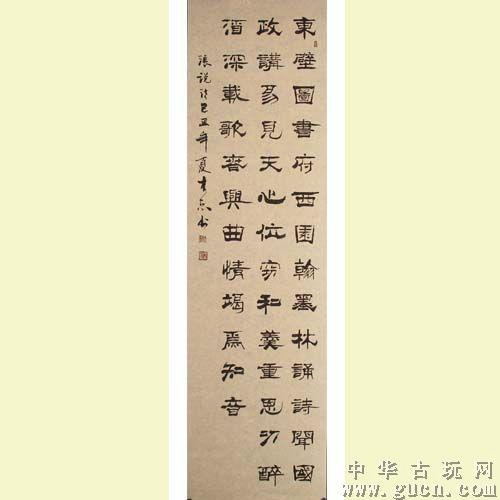 東壁圖書府西園翰墨林誦詩聞國
政講易見天心位竊和羹重恩叨醉
酒深載歌春興曲情竭爲知音
張說詩己丑年夏
中华古玩网
www.gucn.com